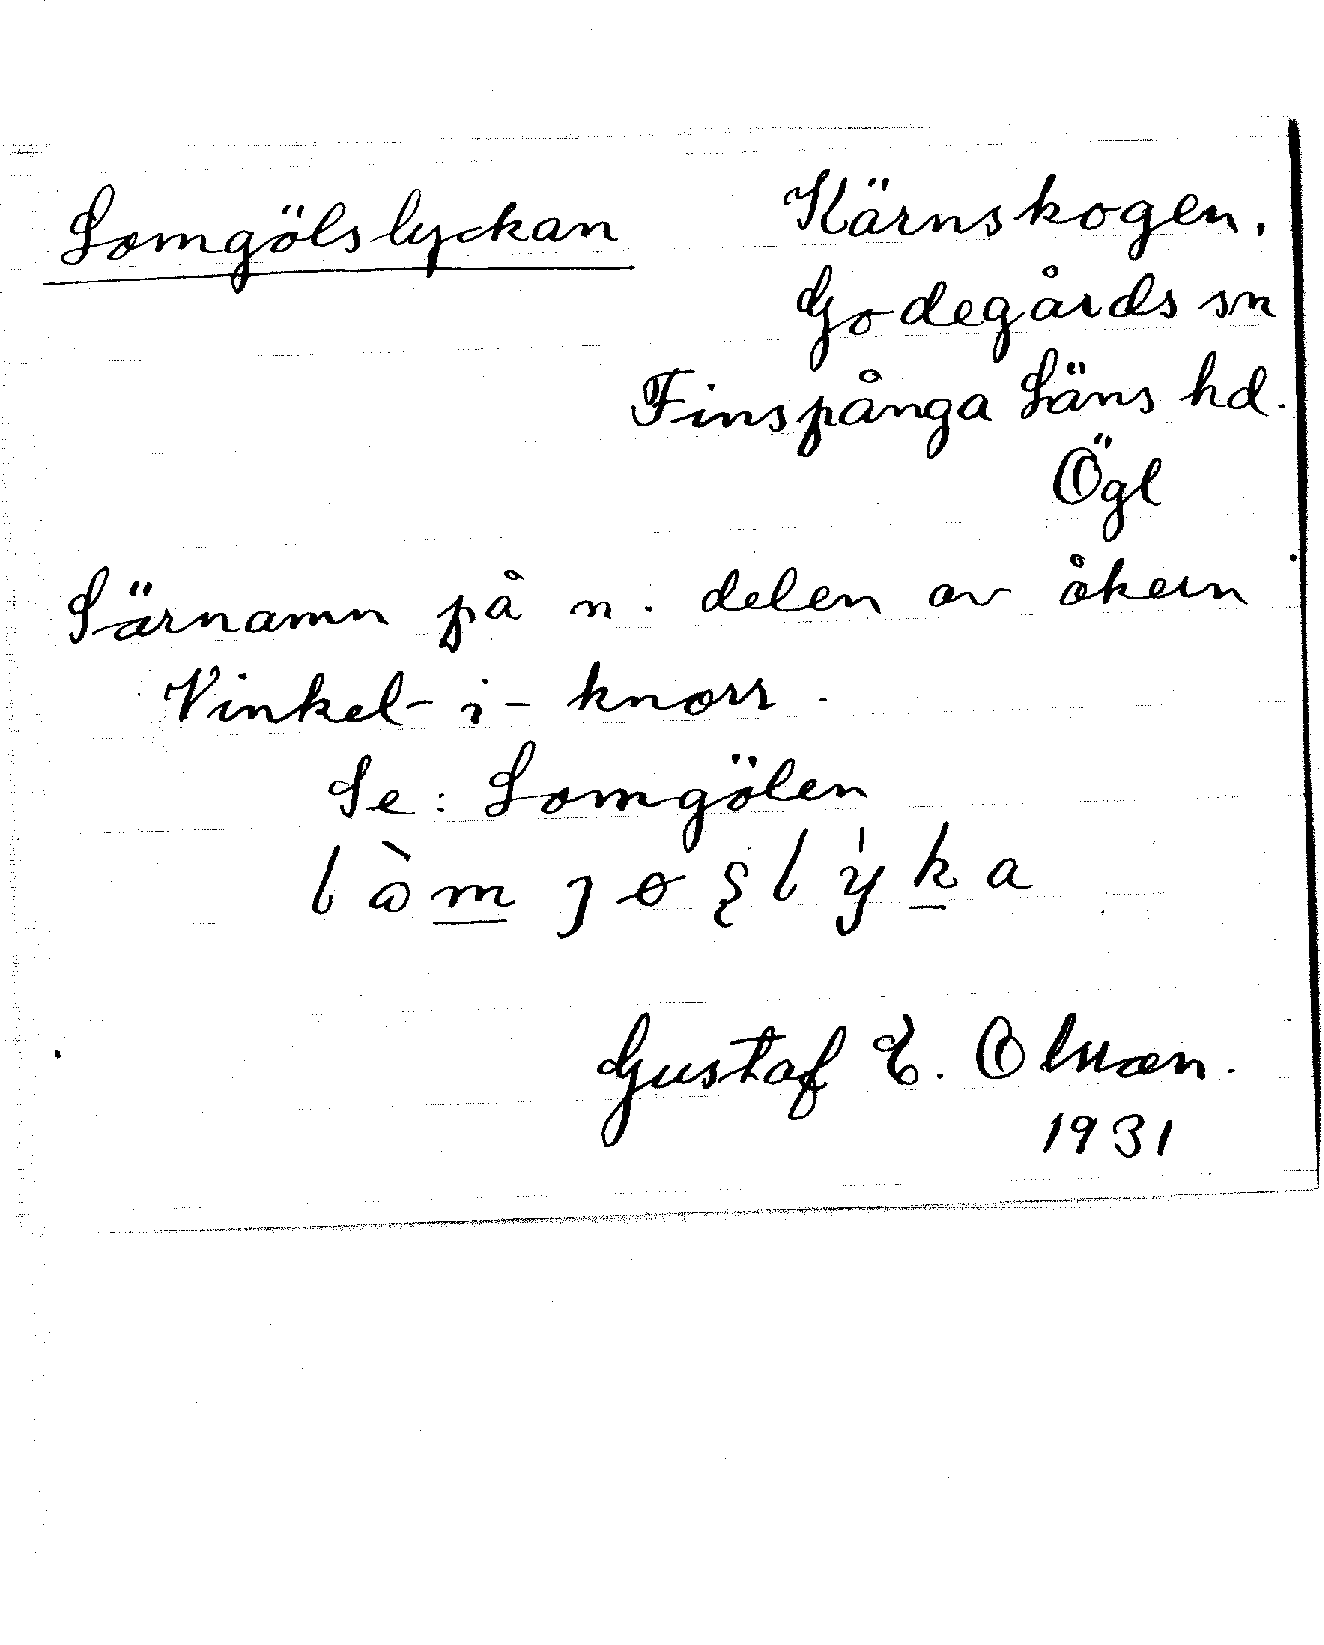 Lomgölslyckan
Kärnskogen.
Godegårds sn
Finspånga Läns hd.
Ögl
Särnamn på n. delen av åkern
Vinkel-i-knorr.
Se: Lomgölen
Gustaf E. Olsson.
1931